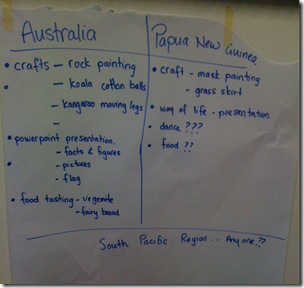 Australia
• crafts – rock painting
• – koala cotton balls
– kangaroo moving legs
–
• powerpoint presentation.
– facts & figures
• – pictures
– flag
• food tasting – vegemite
– fairy bread
Papua New Guinea
• craft – mask painting
– grass skirt
• way of life – presentation
• dance ???
• food ??
South Pacific Region .. Anyone??